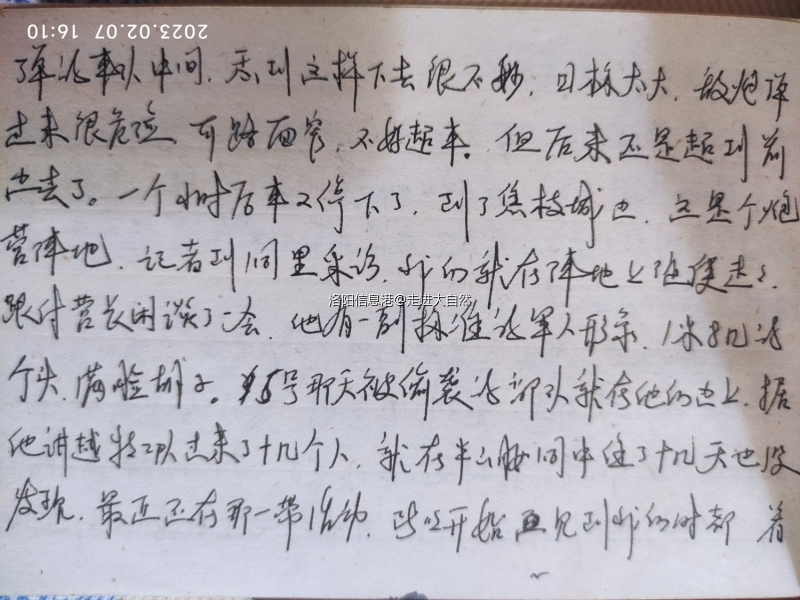 2023.02.07 16:10
弹的车队中间，看到这样下去很不妙，目标太大，敌炮弹
过来很危险，可路面窄，不好超车。但后来还是超到前
边去了。一个小时后车又停下了，到了焦枝城边，这是个炮
营阵地，记者到洞里采访，我们就在阵地上随便走走，
跟付营长闲谈了一会，他有一副标准的军人形象，1米8几的
个头，满脸胡子。6号那天被偷袭的部队就在他们边上，据
他讲越特工队过来了十几个人，就在半山腰洞中住了十几天也没
发现，最近还在那一带活动，所以开始看见到我们时都 着
洛阳信息港@走进大自然